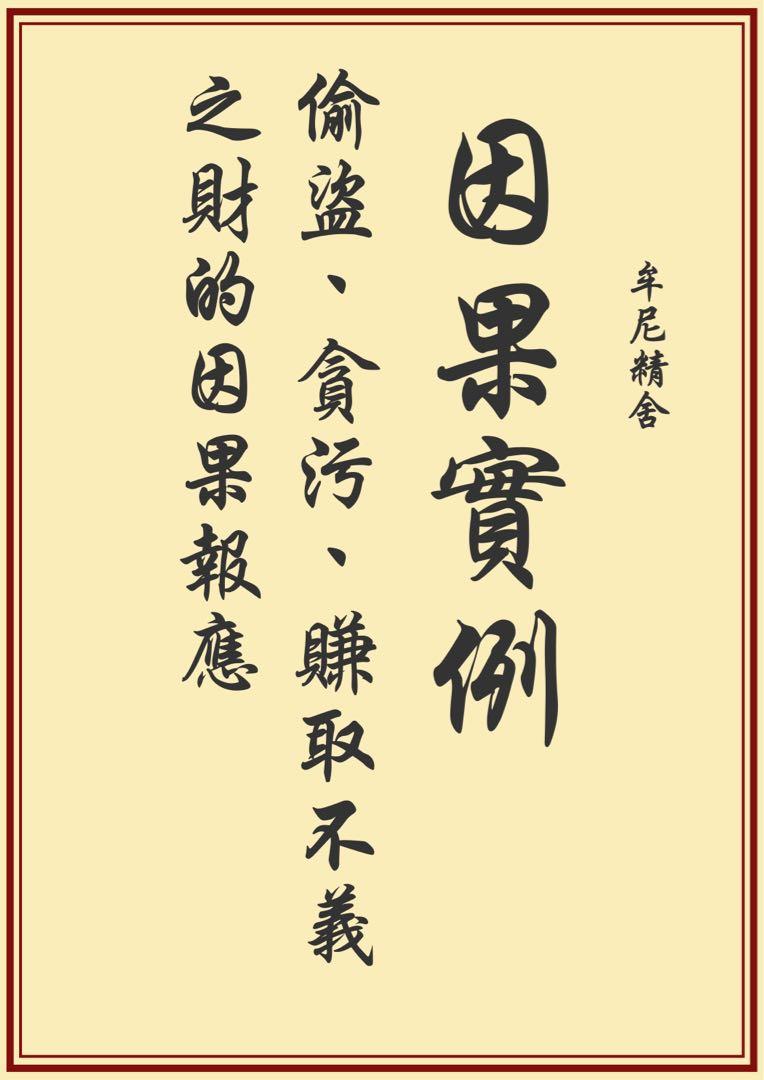 牟尼精舍
因果實例
偷盜、貪污、賺取不義
之財的因果報應